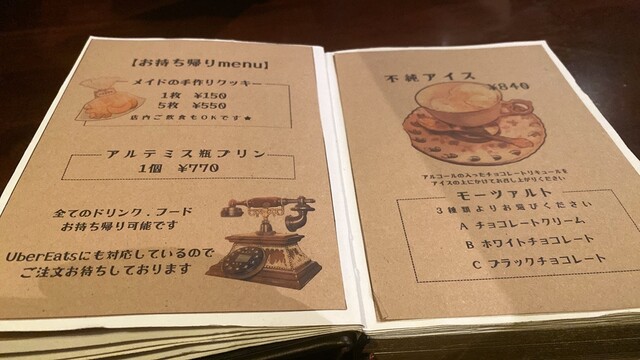 【お持ち帰りmenu】
メイドの手作りクッキー
1枚 ¥150
5枚 ¥550
店内ご飲食もOKです★
アルテミス瓶プリン
1個 ¥770
全てのドリンク.フード
お持ち帰り可能です
UberEatsにも対応しているので
ご注文お待ちしております
不純アイス
¥840
アルコールの入ったチョコレートリキュールを
アイスの上にかけてお召し上がりください
モーツァルト
3種類よりお選びください
A チョコレートクリーム
B ホワイトチョコレート
C ブラックチョコレート